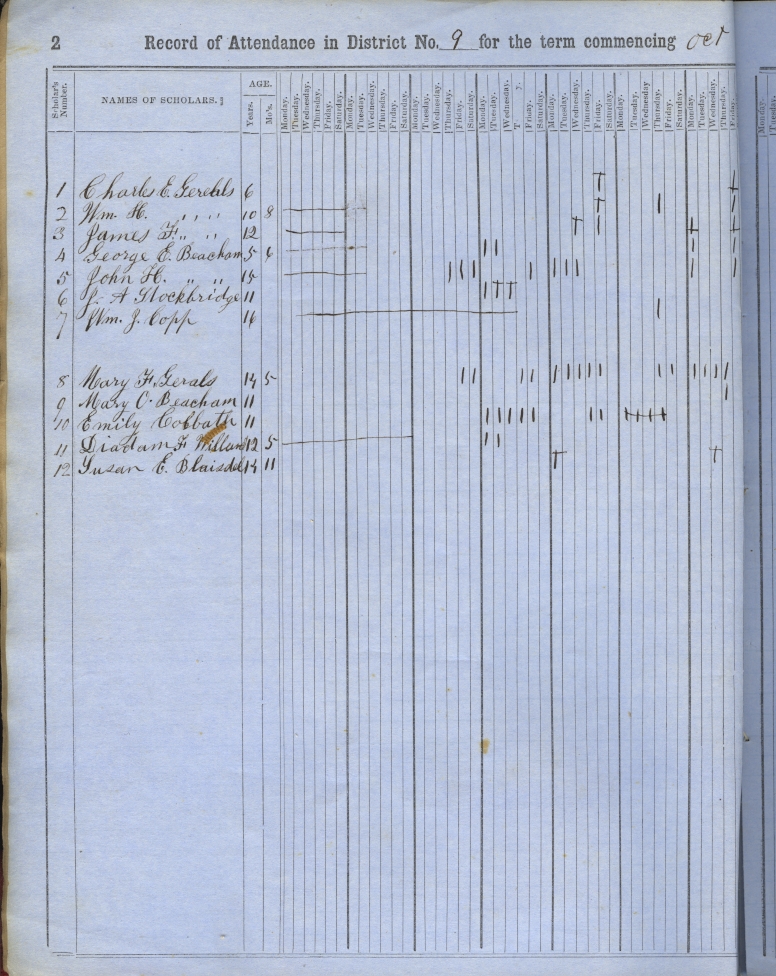 2 Record of Attendance in District No. 9 for the term commencing Oct
Scholar's Number. NAMES OF SCHOLARS. AGE. Years. Mo's. Monday. Tuesday. Wednesday. Thursday. Friday. Saturday. Monday. Tuesday. Wednesday. Thursday. Friday. Saturday. Monday. Tuesday. Wednesday. Thursday. Friday. Saturday. Monday. Tuesday. Wednesday. T y. Friday. Saturday. Monday. Tuesday. Wednesday. Thursday. Friday. Saturday. Monday. Tuesday. Wednesday Thursday. Friday. Saturday. Monday. Tuesday. Wednesday. Thursday. Friday. Monday.
1 Charles E. 6
2 Wm. H. " " 10 8
3 James F. " " 12
4 George E. Beacham 5 6
5 John H. " " 15
6 J. A Stockbridge 11
7 Wm. J. Copp 16
8 Mary F. Gerals 14 5
9 Mary O. Beacham 11
10 Emily Cobbath 11
11 Diadam F 12 5
12 Susan E. Blaisdel 14 11